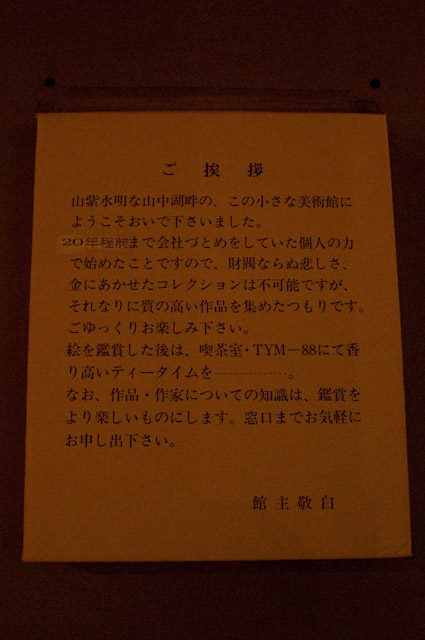 ご挨拶
山紫水明な山中湖畔の、この小さな美術館に
ようこそおいで下さいました。
20年程前まで会社づとめをしていた個人の力
で始めたことですので、財閥ならぬ悲しさ、
金にあかせたコレクションは不可能ですが、
それなりに質の高い作品を集めたつもりです。
ごゆっくりお楽しみ下さい。
絵を鑑賞した後は、喫茶室・TYM―88にて香
り高いティータイムを……………。
なお、作品・作家についての知識は、鑑賞を
より楽しいものにします。窓口までお気軽に
お申し出下さい。
館主敬白